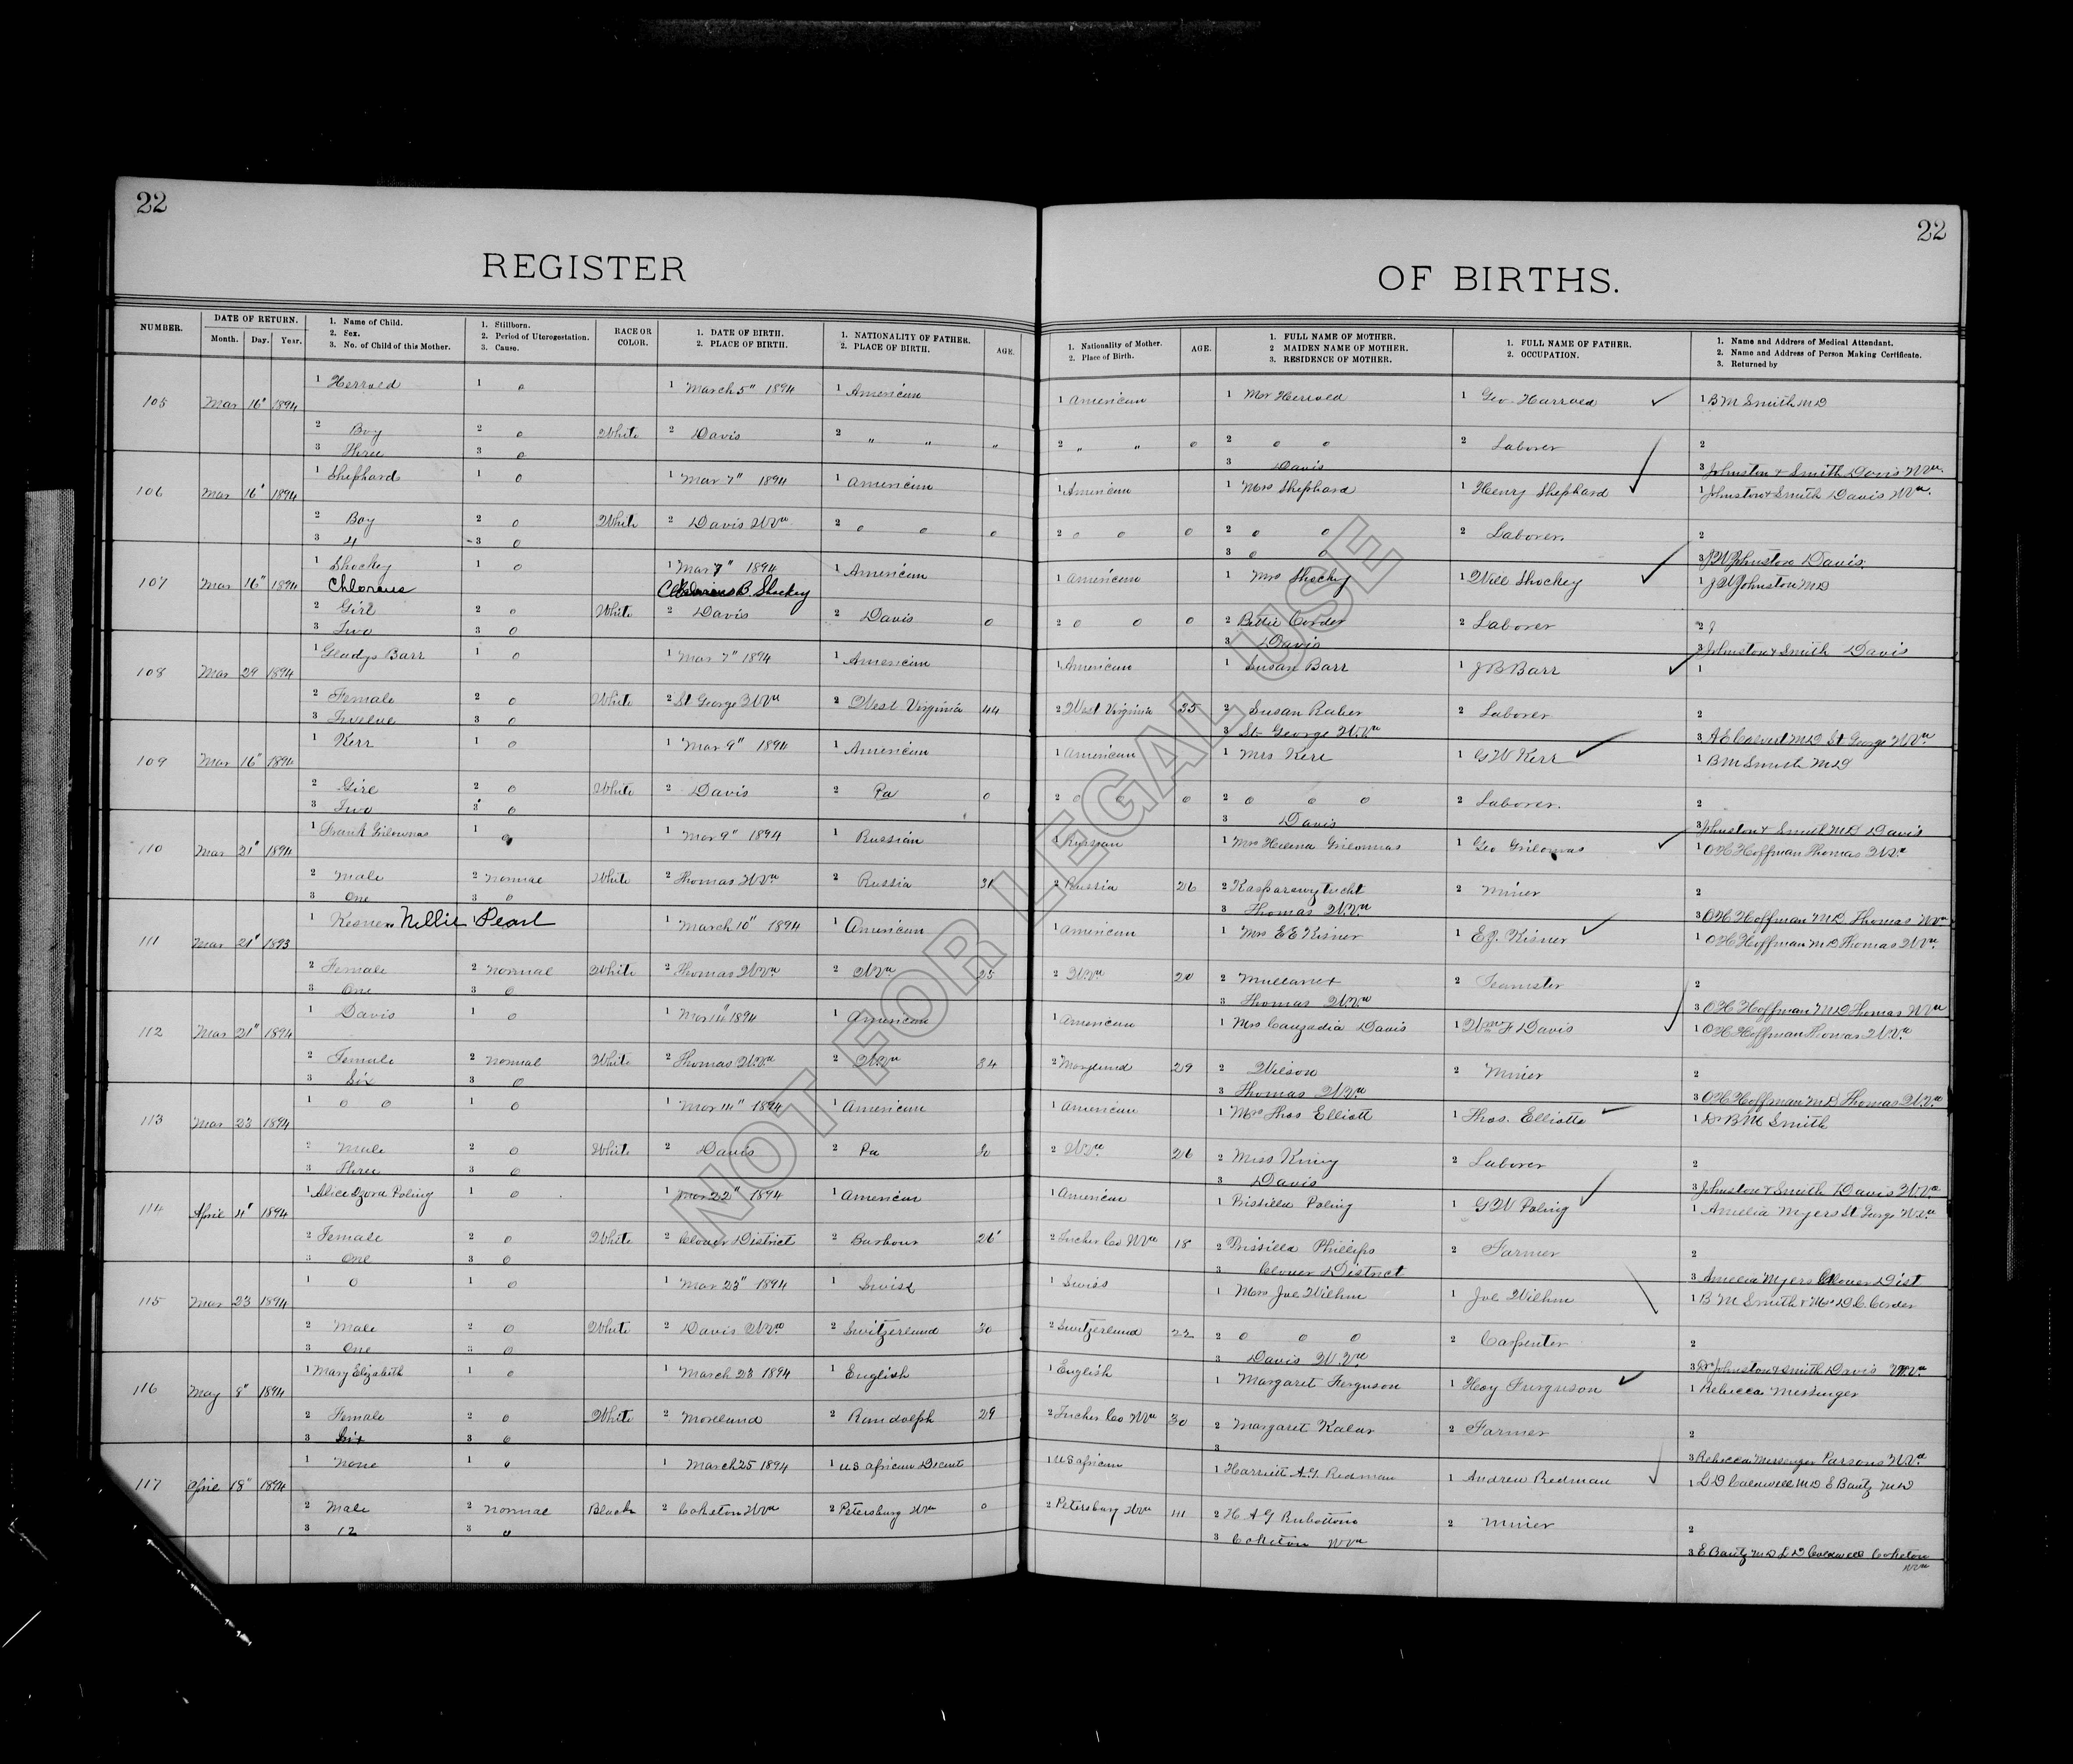 22
22
REGISTER
OF BIRTHS.
NUMBER.
DATE OF RETURN.
Month. Day. Year.
1. Name of Child.
2. Sex.
3. No. of Child of this Mother.
1. Stillborn.
2. Period of Uterogestation.
3. Cause.
RACE OR
COLOR.
1. DATE OF BIRTH.
2. PLACE OF BIRTH.
1. NATIONALITY OF FATHER.
2. PLACE OF BIRTH.
AGE.
1. Nationality of Mother.
2. Place of Birth.
AGE.
1. FULL NAME OF MOTHER.
2 MAIDEN NAME OF MOTHER.
3. RESIDENCE OF MOTHER.
1. FULL NAME OF FATHER.
2. OCCUPATION.
1. Name and Address of Medical Attendant.
2. Name and Address of Person Making Certificate.
3. Returned by
105 Mar 16" 1894
1 Herrold 1 0 1 March 5" 1894 1 American 1 American 1 Mr Herrold 1 Geo Harrold 1 B M Smith MD
2 Boy 2 0 White 2 Davis 2 " " " 2 " " 0 2 0 0 2 Laborer 2
3 Three 3 0 3 Davis 3 Johnston & Smith Davis W Va.
106 Mar 16" 1894
1 Shephard 1 0 1 Mar 7" 1894 1 American 1 American 1 Mrs Shephard 1 Henry Shephard 1 Johnston & Smith Davis W Va.
2 Boy 2 0 White 2 Davis W Va 2 0 0 0 2 0 0 0 2 0 0 2 Laborer. 2
3 4 3 0 3 0 0 3 J W Johnston Davis.
107 Mar 16" 1894
1 Shockey 1 0 1 Mar 7" 1894 1 American 1 American 1 Mrs Shockey 1 Will Shockey 1 J W Johnston MD
Chloraus B. Shockey
2 Girl 2 0 White 2 Davis 2 Davis 0 2 0 0 0 2 Bettie Corder 2 Laborer 2
3 Two 3 0 3 Davis 3 Johnston & Smith Davis
108 Mar 29 1894
1 Gladys Barr 1 0 1 Mar 7" 1894 1 American 1 American 1 Susan Barr 1 J B Barr 1
2 Female 2 0 White 2 St George W Va 2 West Virginia 44 2 West Virginia 35 2 Susan Raber 2 Laborer 2
3 Twelve 3 0 3 St George W.Va 3 A E Calvert MD St George W Va.
109 Mar 16" 1894
1 Kerr 1 0 1 Mar 9" 1894 1 American 1 American 1 Mrs Kerr 1 G W Kerr 1 B M Smith MD
2 Girl 2 0 White 2 Davis 2 Pa 0 2 0 0 0 2 0 0 0 2 Laborer. 2
3 Two 3 0 3 Davis 3 Johnston & Smith MD Davis
110 Mar 21" 1894
1 Frank Grilownas 1 0 1 Mar 9" 1894 1 Russian 1 Russian 1 Mrs Helena Grilownas 1 Geo Grilownas 1 O H Hoffman Thomas W.Va
2 Male 2 Normal White 2 Thomas W Va 2 Russia 31 2 Russia 26 2 2 Miner 2
3 One 3 0 3 Thomas W.Va 3 O H Hoffman MD. Thomas W Va
111 Mar 21" 1893
1 Kesner Nellie Pearl 1 March 10" 1894 1 American 1 American 1 Mrs E E Kisner 1 E J. Kisner 1 O H Hoffman MD Thomas W Va.
2 Female 2 Normal White 2 Thomas W Va 2 W Va 25 2 W.Va 20 2 Mullanex 2 Teamster 2
3 One 3 0 3 Thomas W.Va 3 O H Hoffman MD Thomas W Va
112 Mar 21" 1894
1 Davis 1 0 1 Mar 11" 1894 1 American 1 American 1 Mrs Cauzadia Davis 1 Wm F Davis 1 O H Hoffman Thomas W.Va
2 Female 2 Normal White 2 Thomas W.Va 2 W.Va 34 2 Maryland 29 2 Wilson 2 Miner 2
3 Six 3 0 3 Thomas W.Va 3 O H Hoffman MD Thomas W.Va
113 Mar 23 1894
1 0 0 1 0 1 Mar 14" 1894 1 American 1 American 1 Mrs Thos Elliott 1 Thos. Elliotte 1 Dr B M Smith
2 Male 2 0 White 2 Davis 2 Pa 30 2 W Va. 26 2 Miss King 2 Laborer 2
3 Three 3 0 3 Davis 3 Johnston & Smith Davis W.Va
114 April 4" 1894
1 Alice Dzora Poling 1 0 1 Mar 22" 1894 1 American 1 American 1 Prissilla Poling 1 G W Poling 1 Amelia Myers St George W.Va
2 Female 2 0 White 2 Clover District 2 Barbour 26 2 Tucker Co W Va 18 2 Prissilla Phillips 2 Farmer 2
3 One 3 0 3 Clover District 3 Amelia Myers Clover Dist
115 Mar 23 1894
1 0 1 0 1 Mar 23" 1894 1 Swiss 1 Swiss 1 Mrs Joe Wilhm 1 Joe Wilhm 1 B M Smith & Mrs D. C. Corder
2 Male 2 0 White 2 Davis W.Va 2 Switzerland 30 2 Switzerland 22 2 0 0 0 2 Carpenter 2
3 One 3 0 3 Davis W.Va 3 Dr Johnston & Smith Davis W.Va
116 May 8" 1894
1 Mary Elizabeth 1 0 1 March 23 1894 1 English 1 English 1 Margaret Ferguson 1 Hoy Furguson 1 Rebecca Messenger
2 Female 2 0 White 2 Moreland 2 Randolph 29 2 Tucker Co W Va 30 2 Margaret Kalar 2 Farmer 2
3 Six 3 0 3 3 Rebecca Messenger Parsons W.Va
117 April 18" 1894
1 None 1 0 1 March 25 1894 1 U S African Decent 1 U S African 1 Harriett A. G. Redman 1 Andrew Redman 1 L D Caldwell MD E Bautz MD
2 Male 2 Normal Black 2 Coketon W Va 2 Petersburg W Va 0 2 Petersburg W Va 41 2 H A G Rubottom 2 Miner 2
3 12 3 0 3 Coketon W Va 3 E Bautz MD L D Caldwell Coketon
W Va
NOT FOR LEGAL USE